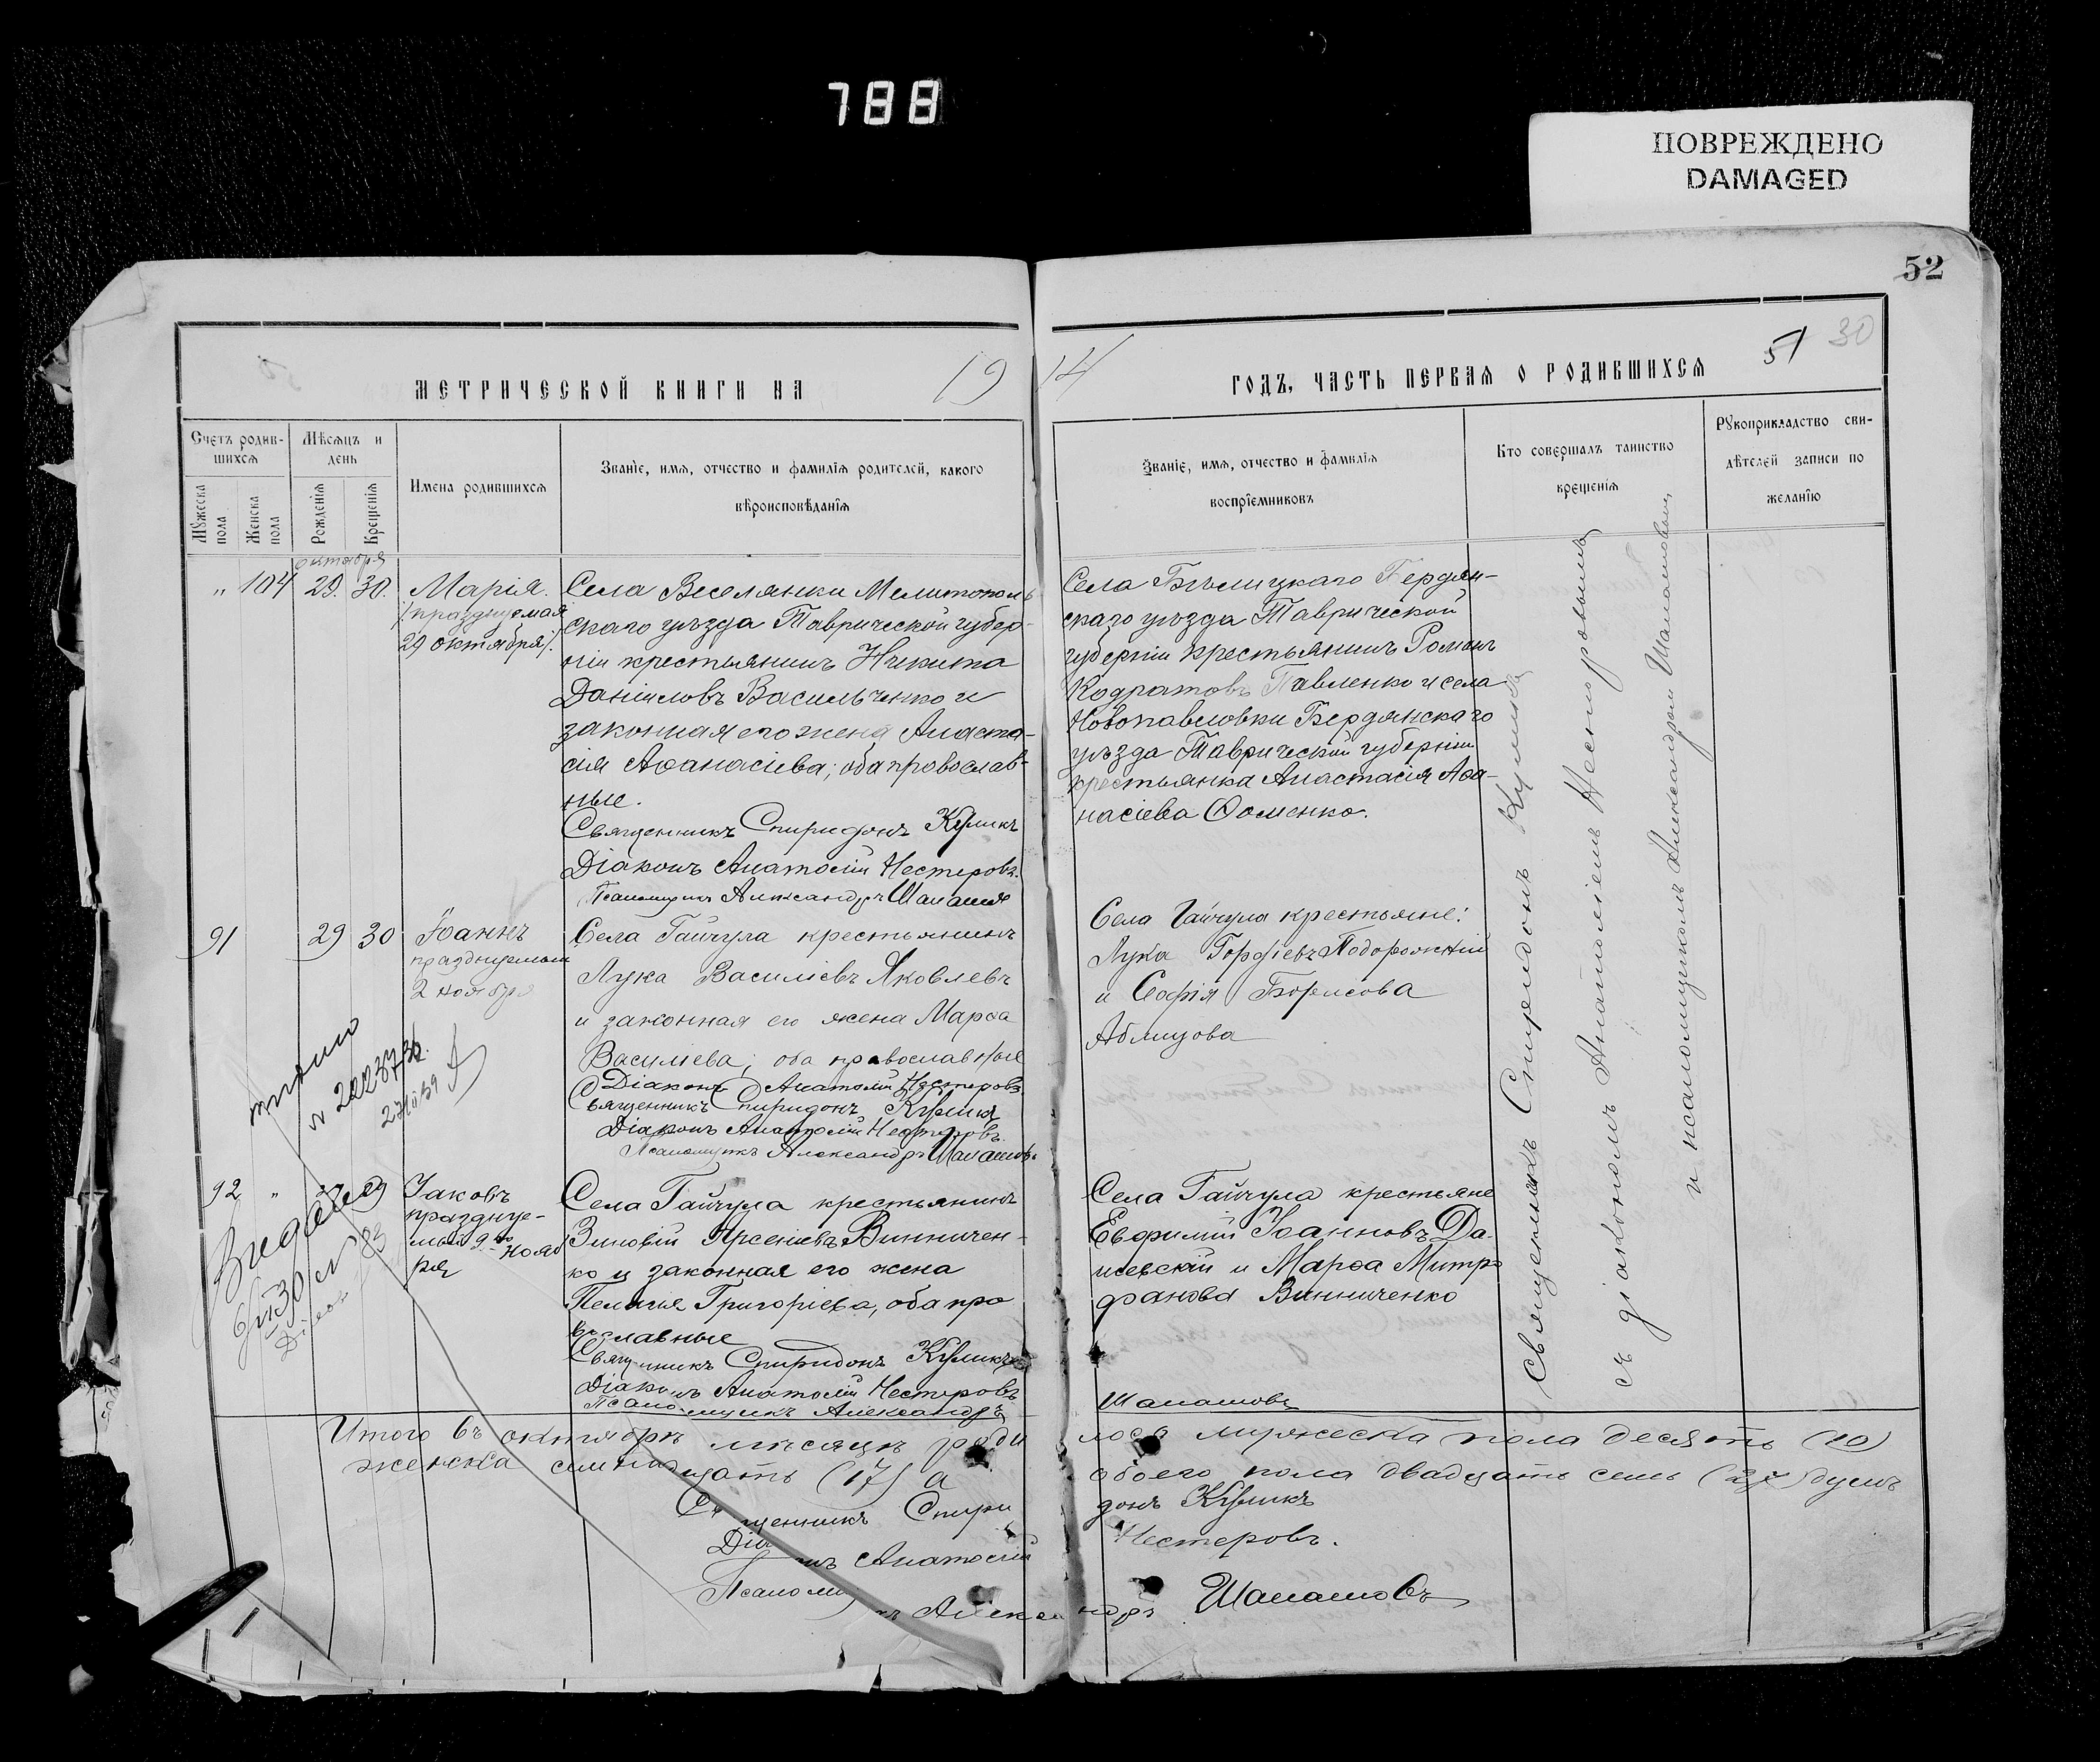 788
ПОВРЕЖДЕНО
DAMAGED
52
51 30
МЕТРИЧЕСКОЙ КНИГИ НА 19
14 ГОДЪ, ЧАСТЬ ПЕРВАЯ О РОДИВШИХСЯ
Счетъ родив-
шихся
Мѣсяцъ и
день
Мужеска
пола
Женска
пола
Рожденія
Крещенія
Имена родившихся
Званіе, имя, отчество и фамилія родителей, какого
вѣроисповѣданія
Званіе, имя, отчество и фамилія
воспріемниковъ
Кто совершалъ таинство
крещенія
Рукоприкладство сви-
дѣтелей записи по
желанію
октября
" 104 29. 30. Марія.
/:празднуемая
29 октября:/
Села Веселянки Мелитополь
скаго уѣзда Таврической губер-
ніи крестьянинъ Никита
Даніиловъ Васильченко и
законная его жена Анаста-
сія Аѳанасіева; оба провослав-
ные.
Священникъ Спиридонъ Куликъ
Діаконъ Анатолій Нестеровъ.
Псаломщикъ Александръ
Села Бѣлицкаго Бердян-
скаго уѣзда Таврической
губерніи крестьянинъ Романъ
Кодратовъ Павленко и села
Новопавловки Бердянскаго
уѣзда Таврической губерніи
крестьянка Анастасія Аѳа-
насіева Ѳоменко.
91 29 30 Іоаннъ
празднуемый
2 ноября
Села Гайчула крестьянинъ
Лука Василіевъ Яковлевъ
и законная его жена Марѳа
Василіева; оба православные
Діаконъ Анатолій Нестеровъ
Священникъ Спиридонъ Куликъ
Діаконъ Анатолій Нестеровъ.
Псаломщикъ Александръ
Села Гайчула крестьяне:
Лука Гордіевъ Подорожній
и Софія Борисова
92 " Іаковъ
празднуе-
мый 9го нояб
ря
Села Гайчула крестьянинъ
Зиновій Арсеніевъ Винничен-
ко и законная его жена
Пелагія Григоріева, оба пра
вославные
Священникъ Спиридонъ Куликъ
Діаконъ Анатолій Нестеровъ
Псаломщикъ Александръ
Села Гайчула крестьяне
Евфимій Іоанновъ Да-
и Марѳа Митро
фанова Винниченко
Священникъ Спиридонъ Куликъ
съ діакономъ Анатоліемъ Нестеровымъ
и псаломщикомъ Александромъ
Итого въ октябрѣ мѣсяцѣ роди
лось мужеска пола десять (10)
женска семнадцать (17) а
обоего пола двадцать семь (27) душъ
Священникъ Спири
донъ Куликъ
Діаконъ Анатолій
Нестеровъ.
Псаломщикъ Александръ